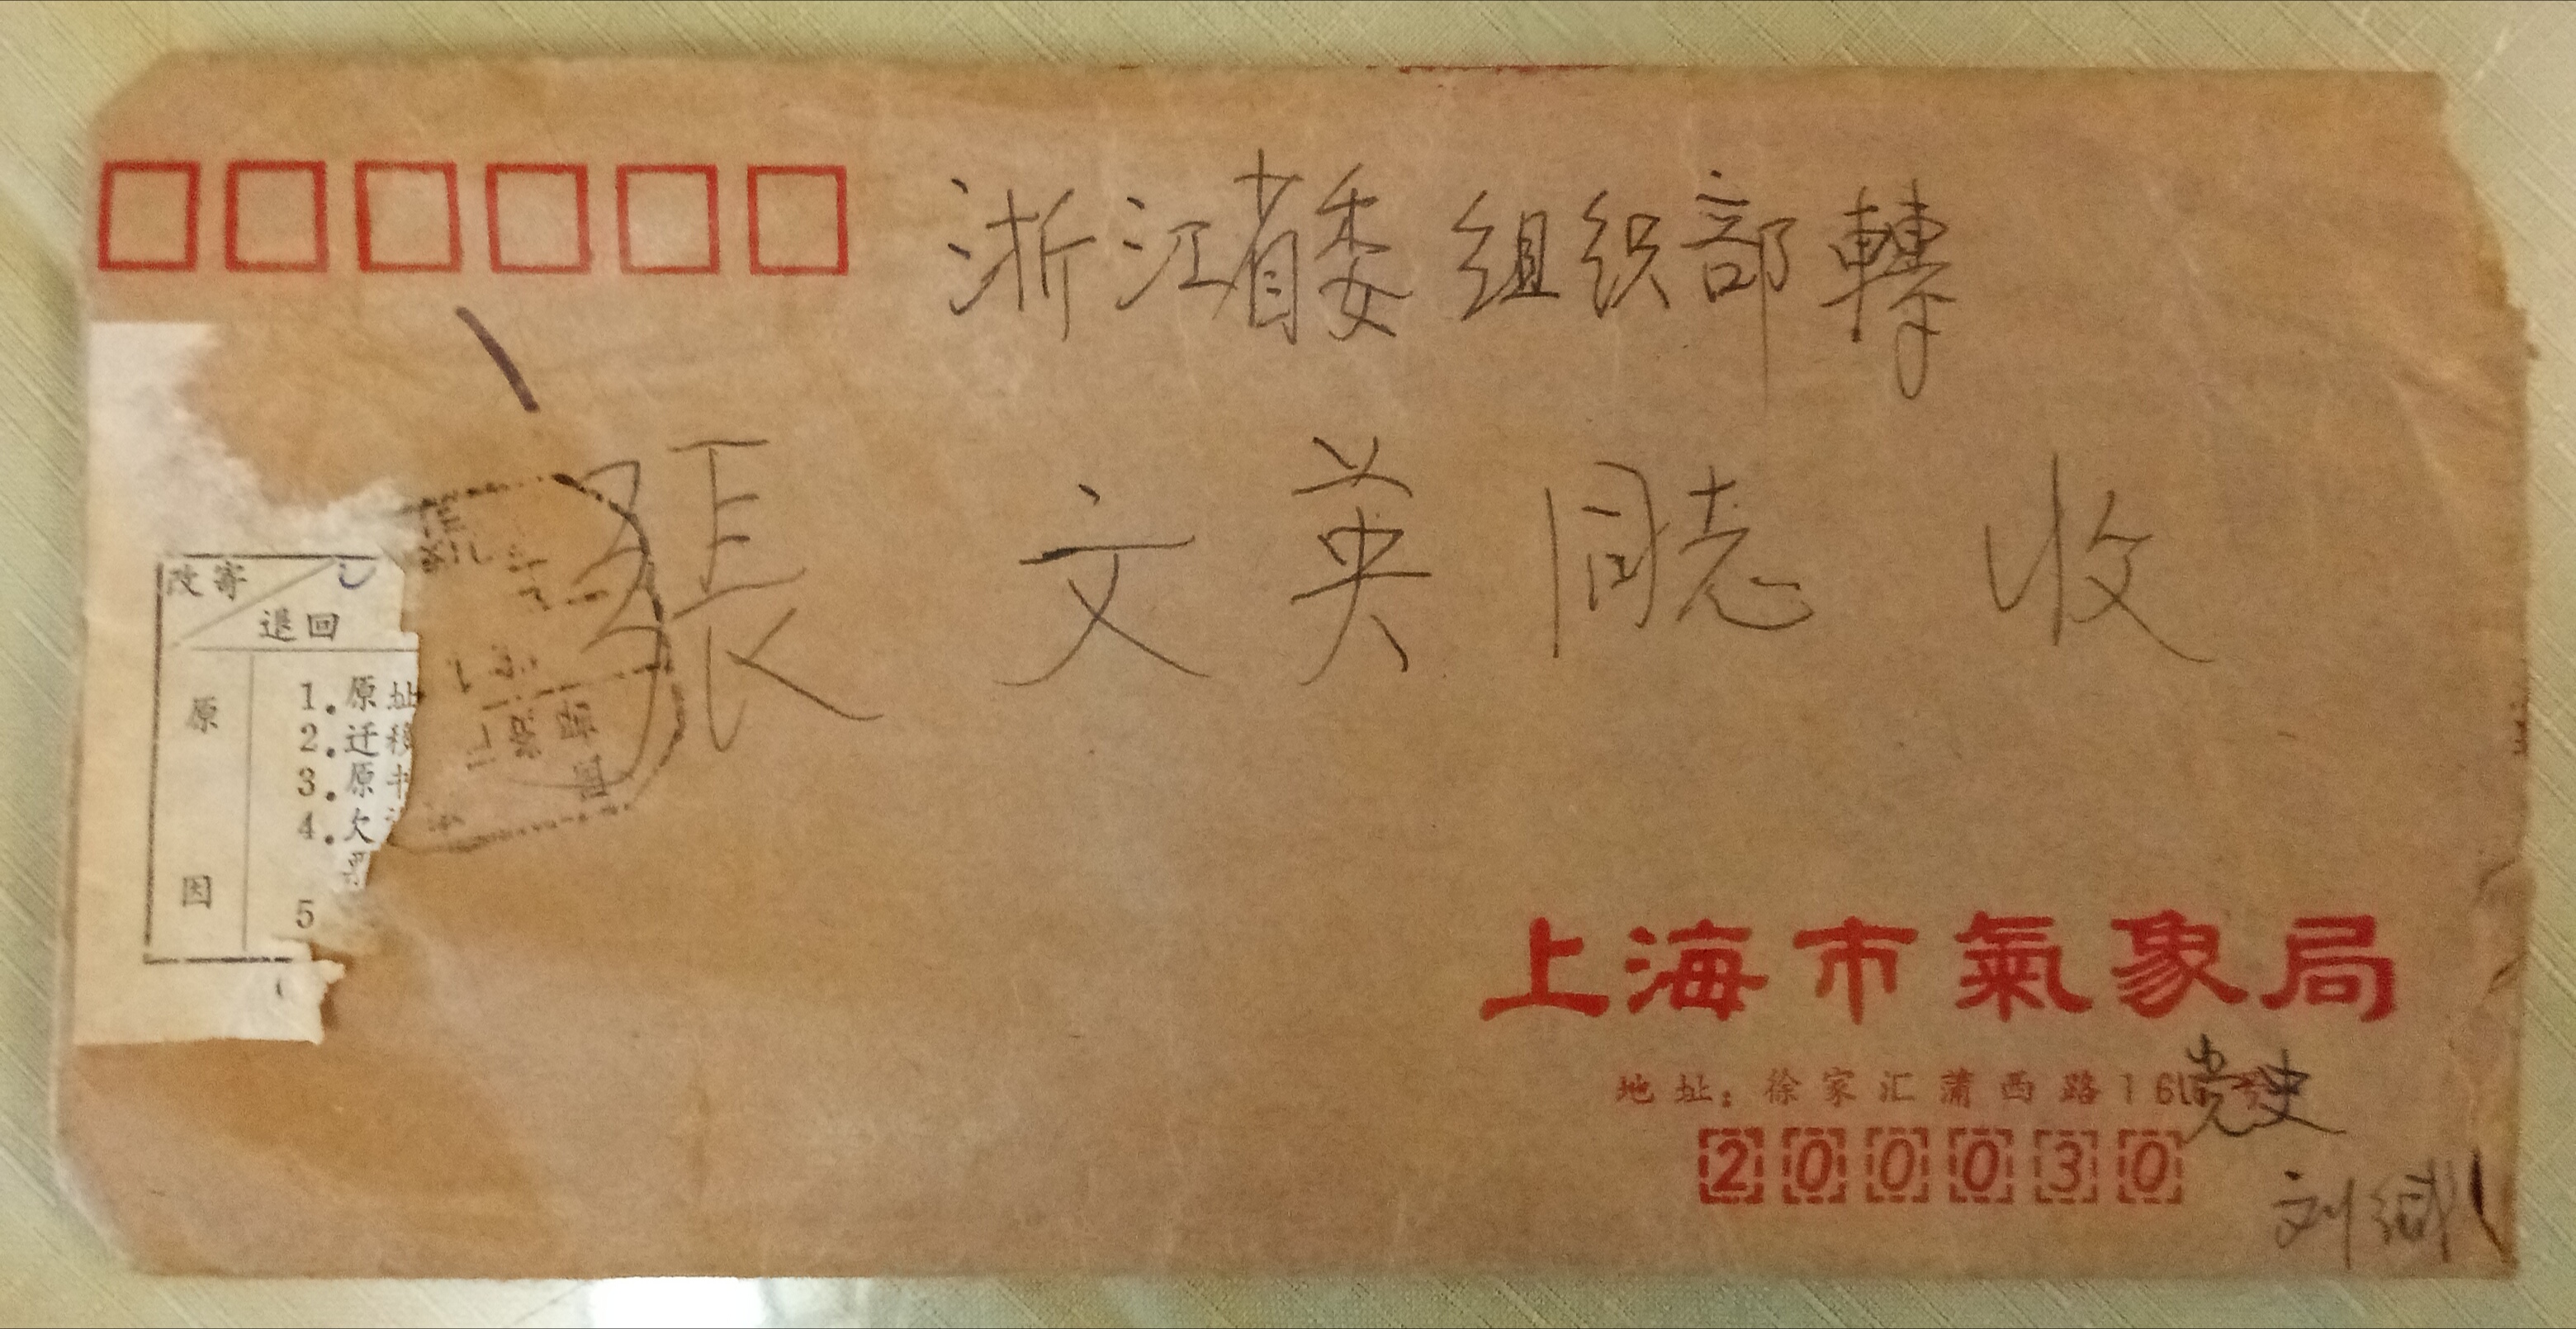 浙江省委组织部轉
張文英同志 收
改寄
退回
原因
1.原址
2.迁移
3.原
4.欠
5
上海市氣象局
地址：徐家汇蒲西路16
党史
200030
刘